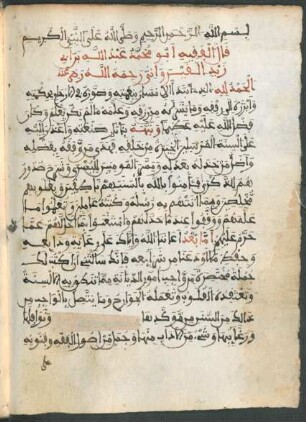 بسم الله الرحمن الرحيم وصلى الله على النبي الكريم
قال الفقيه أبو محمد عبد الله بن أبي
زيد القيرواني رحمه الله
الحمد لله الذي ابتدأ الإنسان بنعمته وصوره في الأرحام بحكمته
وأبرزه إلى رفقه وما يسره له من رزقه وعلمه ما لم يكن يعلم وكان
فضل الله عليه عظيما ونبهه بآثار صنعته وأعذر إليه
على ألسنة المرسلين الخيرة من خلقه فهدى من وفقه بفضله
وأضل من خذله بعدله ويسر المومنين لليسرى وشرح صدورهم
للذكرى فآمنوا بالله بألسنتهم ناطقين وبقلوبهم
مخلصين وبما أتتهم به رسله وكتبه عاملين وتعلموا ما
علمهم ووقفوا عند ما حد لهم واستغنوا بما أحل لهم عما
حرم عليهم أما بعد أعاننا الله وإياك على رعاية ودائعه
وحفظ ما أودعنا من شرائعه فإنك سألتني أن أكتب لك
جملة مختصرة من واجب أمور الديانة مما تنطق به الألسنة
وتعتقده القلوب وتعمله الجوارح وما يتصل بالواجب من
ذلك من السنن من مؤكدها ونوافلها
ورغائبها وشيء من الآداب منها وجمل من أصول الفقه وفنونه
على